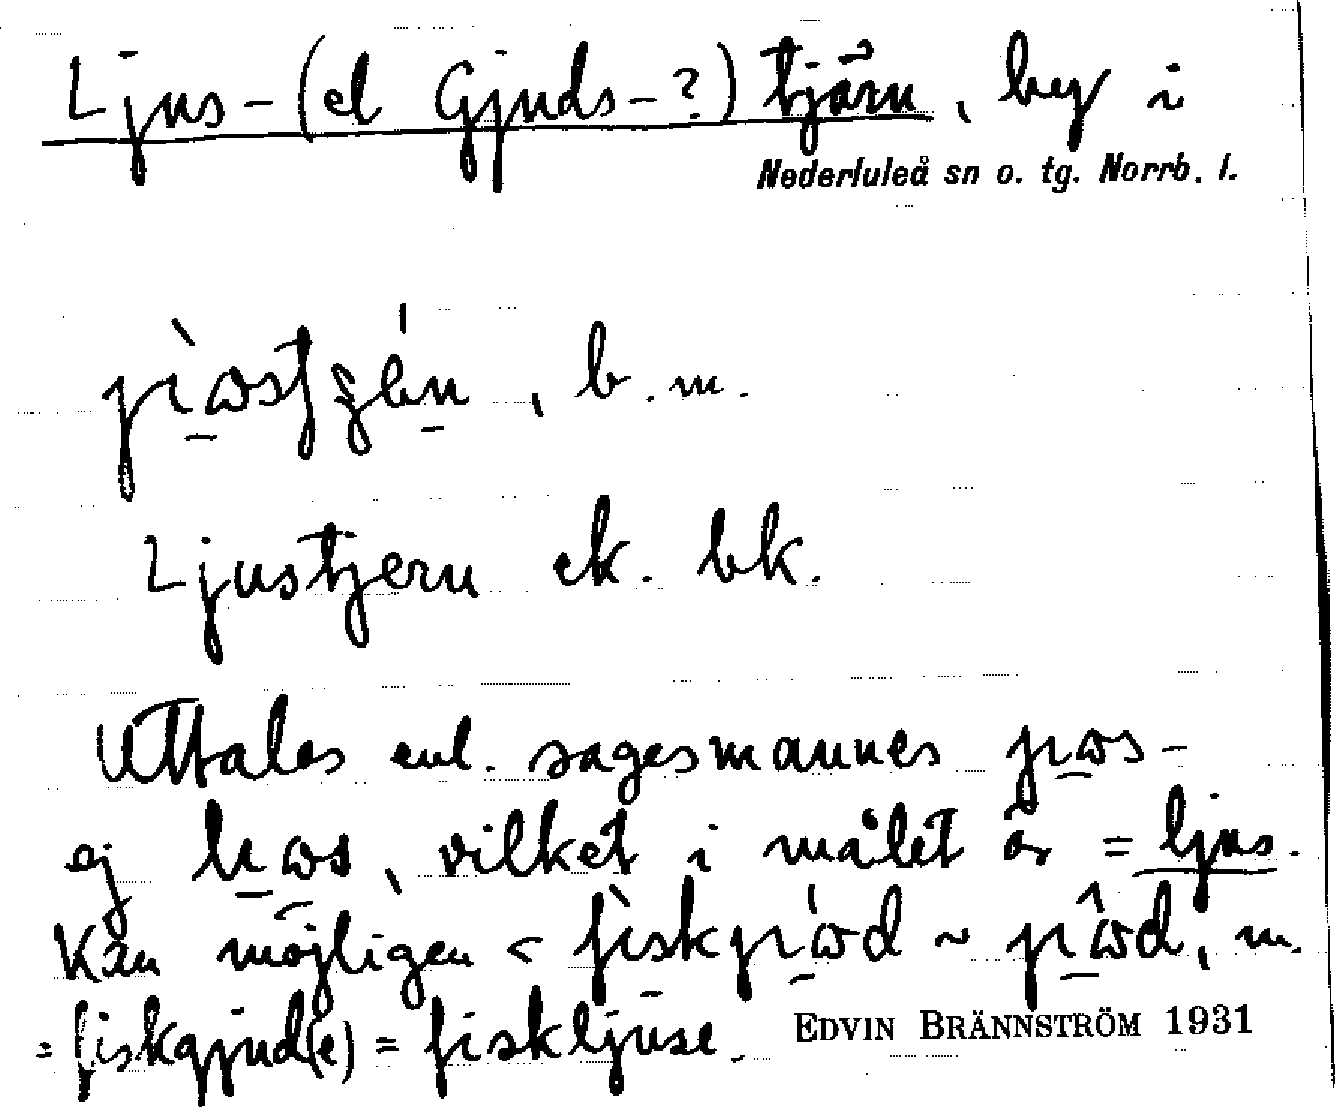 Ljus- (el Gjuds-?) tjärn, by i
Nederluleå sn o. tg. Norrb. l.
b. m.
Ljustjern ek. bk.
Uttales enl. sagesmannes
ej vilket i målet är = ljus.
Kan möjligen <
= fiskgjud(e) = fiskljuse.
EDVIN BRÄNNSTRÖM 1931